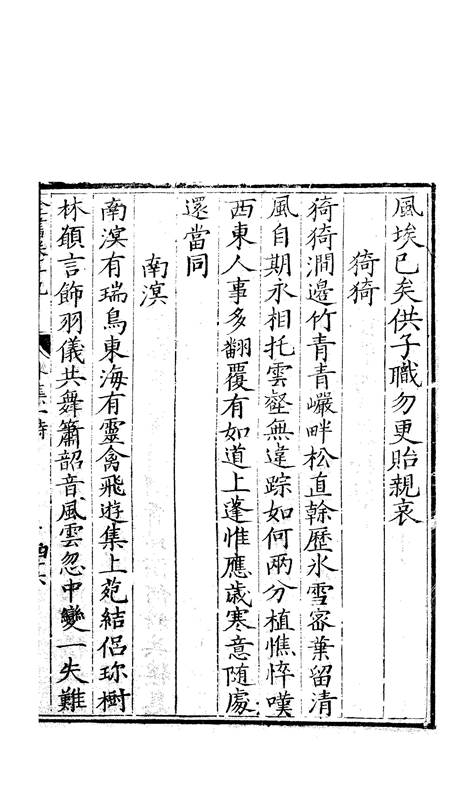 風埃已矣供子職勿更貽親哀
猗猗
猗猗澗邊竹青青巖畔松直榦歷氷雪密葉留清
風自期永相托雲壑無違踪如何兩分植憔悴嘆
西東人事多翻覆有如道上蓬惟應歲寒意随處
還當同
南溟
南溟有瑞鳥東海有靈禽飛遊集上苑結侶珎樹
林願言飾羽儀共舞簫韶音風雲忽中變一失難